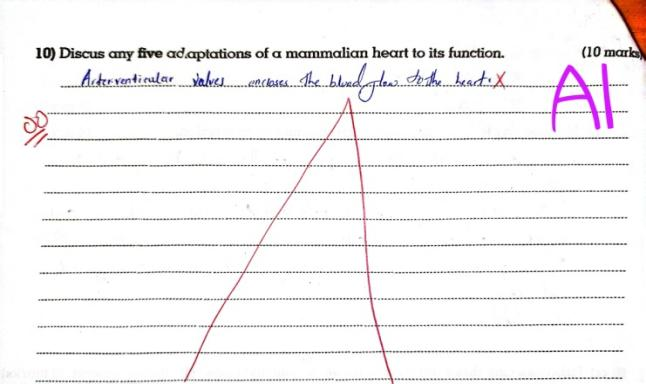 10) Discus any five adaptations of a mammalian heart to its function. (10 marks)
Arterventicular valves encloses the blood flow to the heart. X
AI
00